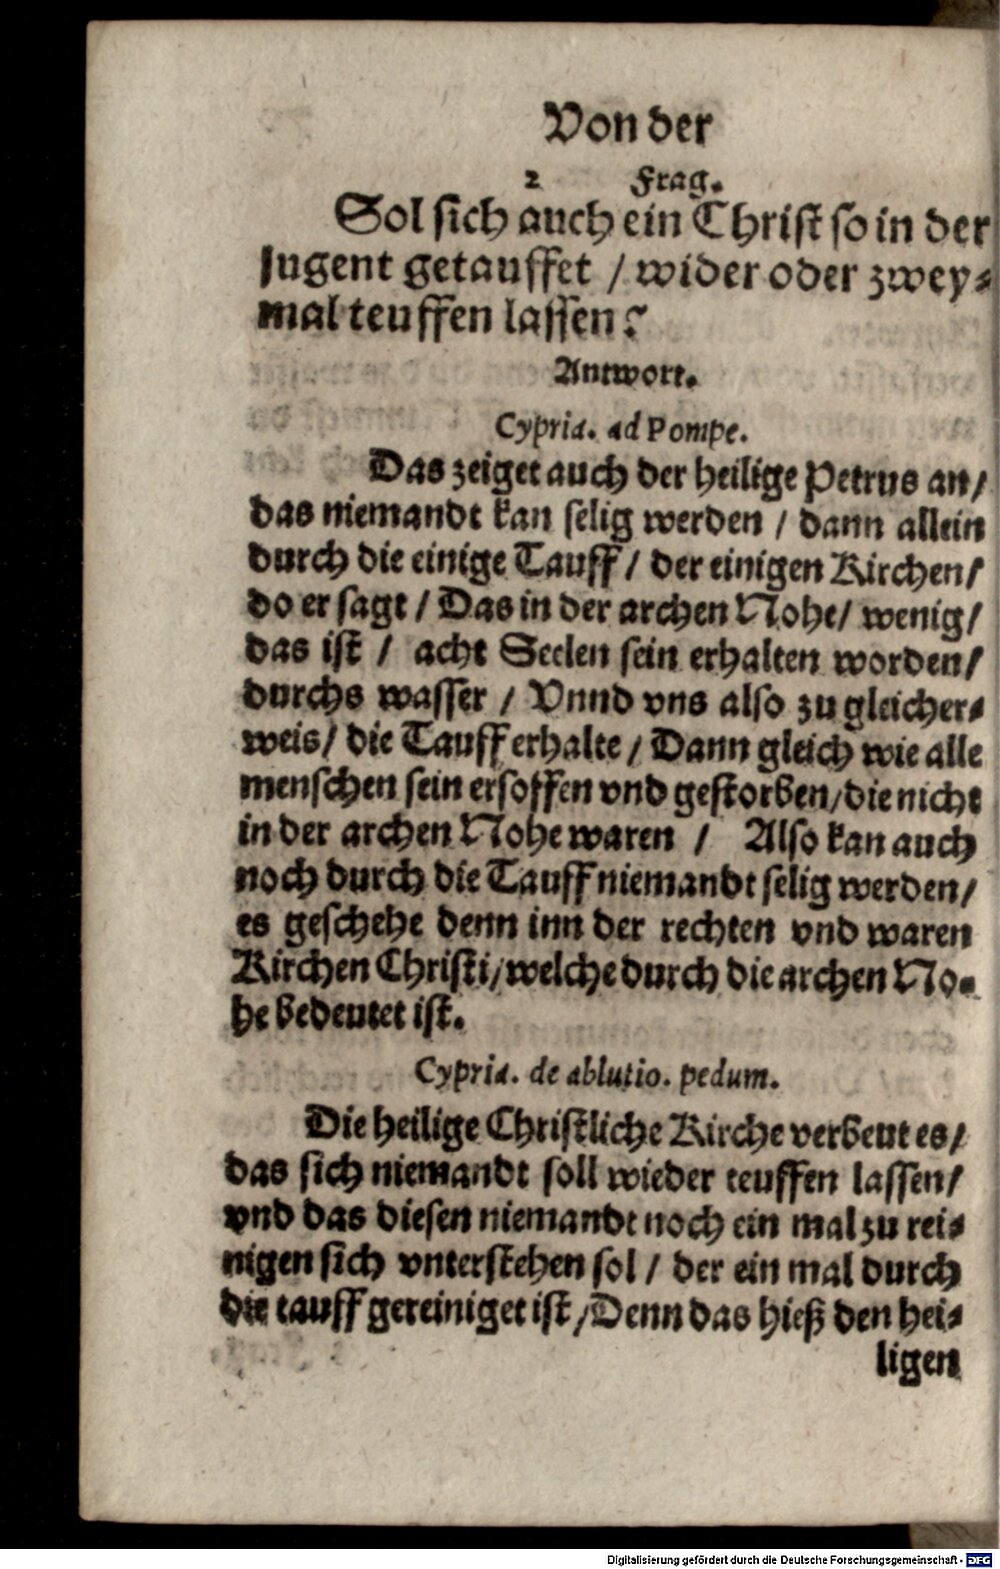 Von der
2 Frag.
Sol sich auch ein Christ so in der
Jugent getauffet / wider oder zwey⸗
mal teuffen lassen?
Antwort.
Cypria. ad Pompe.
Das zeiget auch der heilige Petrus an/
das niemandt kan selig werden / dann allein
durch die einige Tauff / der einigen Kirchen/
do er sagt / Das in der archen Nohe/ wenig/
das ist / acht Seelen sein erhalten worden/
durchs wasser / Vnnd vns also zu gleicher⸗
weis/ die Tauff erhalte / Dann gleich wie alle
menschen sein ersoffen vnd gestorben/die nicht
in der archen Nohe waren / Also kan auch
noch durch die Tauff niemandt selig werden/
es geschehe denn inn der rechten vnd waren
Kirchen Christi/welche durch die archen No⸗
he bedeutet ist.
Cypria. de ablutio. pedum.
Die heilige Christliche Kirche verbeut es/
das sich niemandt soll wieder teuffen lassen/
vnd das diesen niemandt noch ein mal zu rei⸗
nigen sich vnterstehen sol / der ein mal durch
die tauff gereiniget ist /Denn das hieß den hei⸗
ligen
Digitalisierung gefördert durch die Deutsche Forschungsgemeinschaft - DFG